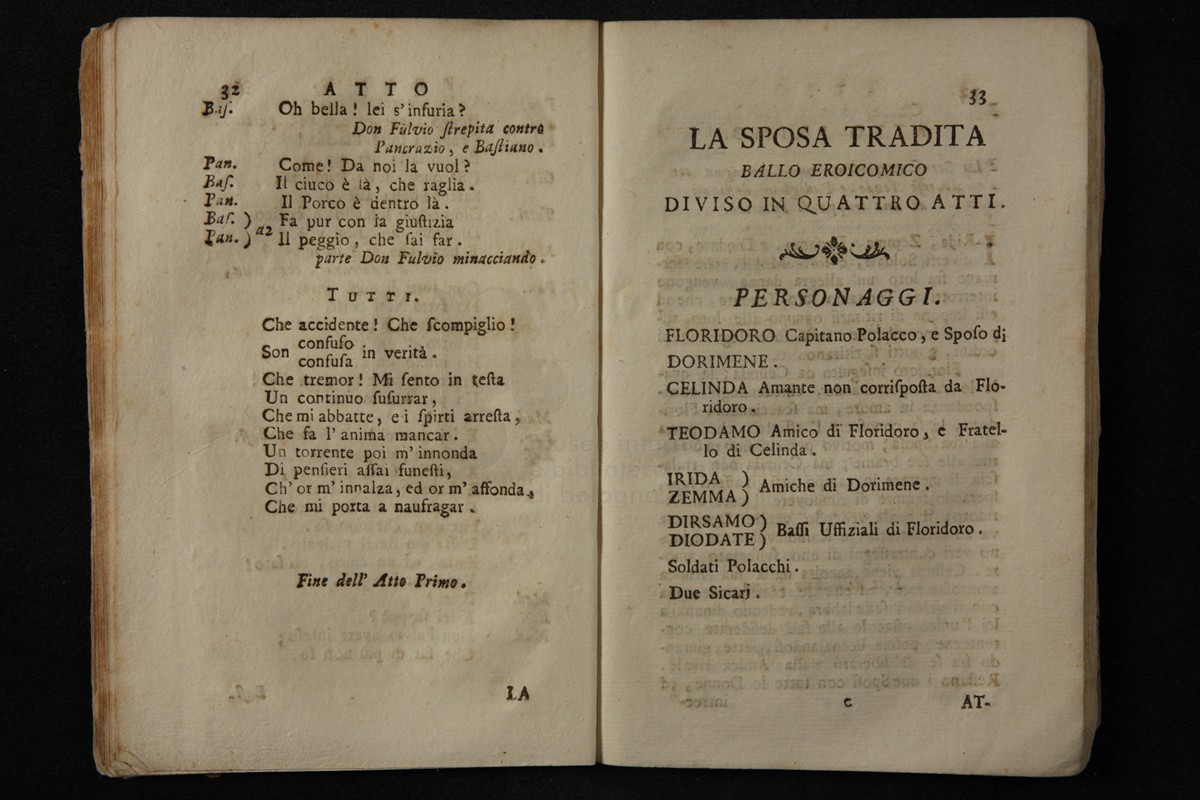 32 ATTO
Baſ. Oh bella! lei s'infuria?
Don Fulvio ſtrepita contro
Pancrazio, e Baſtiano.
Pan. Come! Da noi la vuol?
Baſ. Il ciuco è là, che raglia.
Pan. Il Porco è dentro là.
Baſ. ) a2 Fa pur con la giuſtizia
Pan. ) Il peggio, che ſai far.
parte Don Fulvio minacciando.
TUTTI.
Che accidente! Che ſcompiglio!
Son confuſo in verità.
confuſa
Che tremor! Mi ſento in teſta
Un continuo ſuſurrar,
Che mi abbatte, e i ſpirti arreſta,
Che fa l'anima mancar.
Un torrente poi m'innonda
Di penſieri aſſai funeſti,
Ch'or m'innalza, ed or m'affonda,
Che mi porta a naufragar.
Fine dell' Atto Primo.
LA
33
LA SPOSA TRADITA
BALLO EROICOMICO
DIVISO IN QUATTRO ATTI.
PERSONAGGI.
FLORIDORO Capitano Polacco, e Spoſo di
DORIMENE.
CELINDA Amante non corriſpoſta da Flo-
ridoro.
TEODAMO Amico di Floridoro, e Fratel-
lo di Celinda.
IRIDA )
ZEMMA ) Amiche di Dorimene.
DIRSAMO )
DIODATE ) Baſſi Uffiziali di Floridoro.
Soldati Polacchi.
Due Sicarj.
C AT-